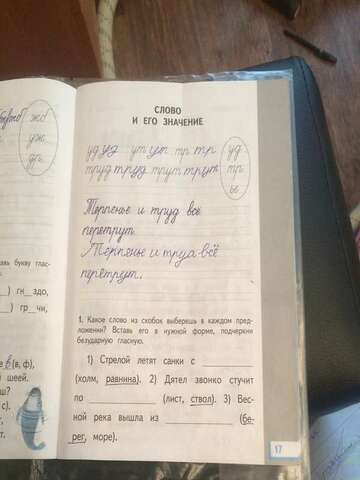 жд
уж
др
СЛОВО
И ЕГО ЗНАЧЕНИЕ
уд уд ут ут тр тр
труд труд трут трут
уд
тр
ье
Терпенье и труд всё
перетрут.
Терпение и труд всё
перетрут.
вь букву глас-
) гн__здо,
) гр__чи,
(в, ф),
шеей.
1. Какое слово из скобок выберешь в каждом пред-
ложении? Вставь его в нужной форме, подчеркни
безударную гласную.
1) Стрелой летят санки с
(холм, равнина). 2) Дятел звонко стучит
по ____________ (лист, ствол). 3) Вес-
ной река вышла из ____________ (бе-
рег, море).
17